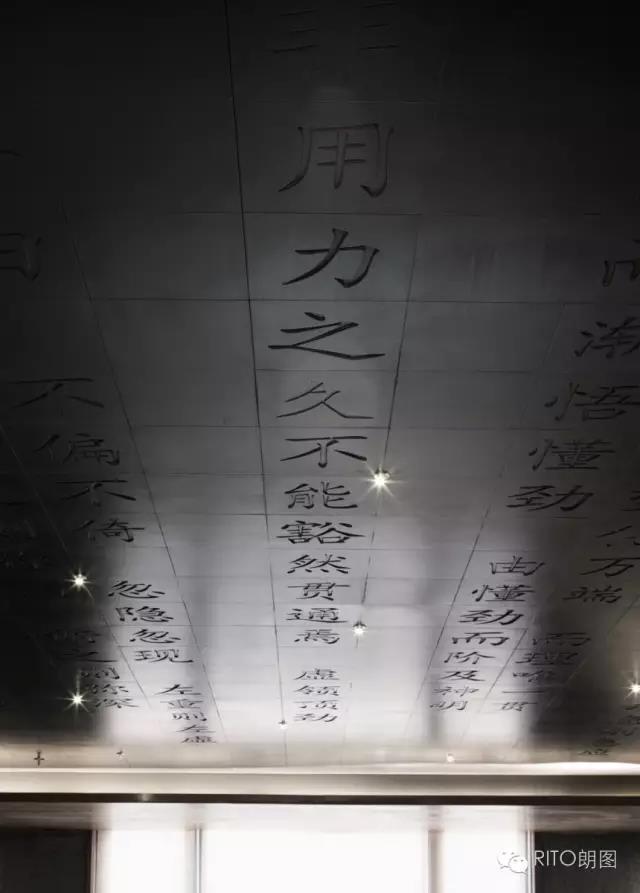 万端 而理唯一贯
而渐悟懂劲 由懂劲而阶及神明
非用力之久不能豁然贯通焉 虚领顶劲
不偏不倚 忽隐忽现 左重则左虚
之则弥深
RITO朗图